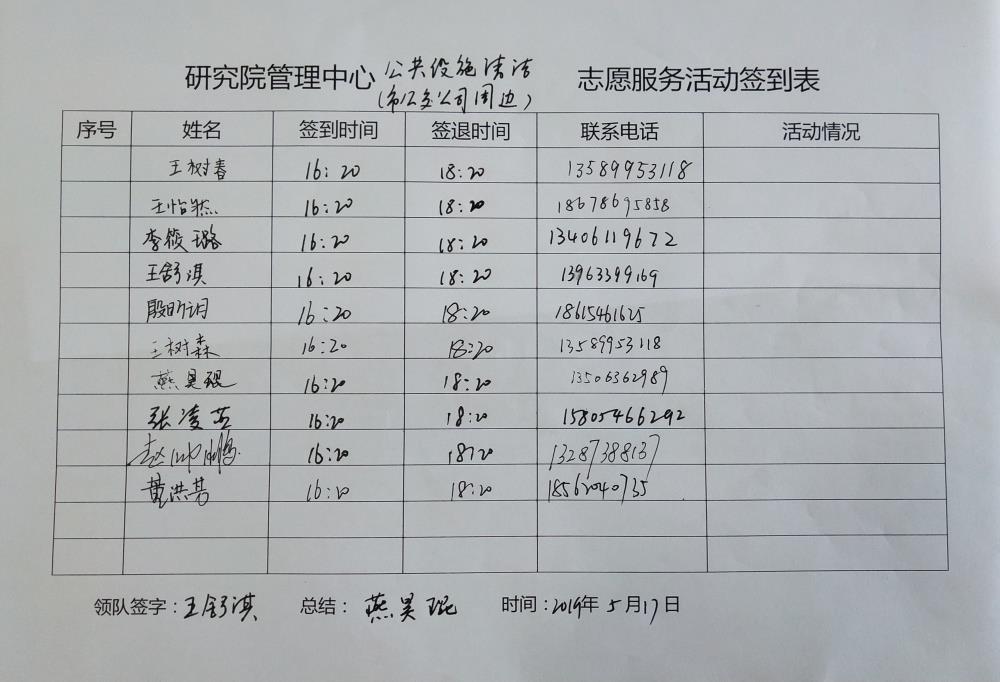 研究院管理中心 公共设施清洁 志愿服务活动签到表
(市公交公司周边)
序号 姓名 签到时间 签退时间 联系电话 活动情况
王树春 16:20 18:20 13589953118
王怡然 16:20 18:20 18678695858
李筱璐 16:20 18:20 13406119672
王舒淇 16:20 18:20 13963399169
殷昕明 16:20 18:20 18615461625
王树森 16:20 18:20 13589953118
燕昊琨 16:20 18:20 13506362989
张凌芸 16:20 18:20 15805466292
赵 鹏 16:20 18:20 13287388137
黄洪芳 16:20 18:20 18562040735
领队签字:王舒淇 总结: 燕昊琨 时间:2019年 5月17日